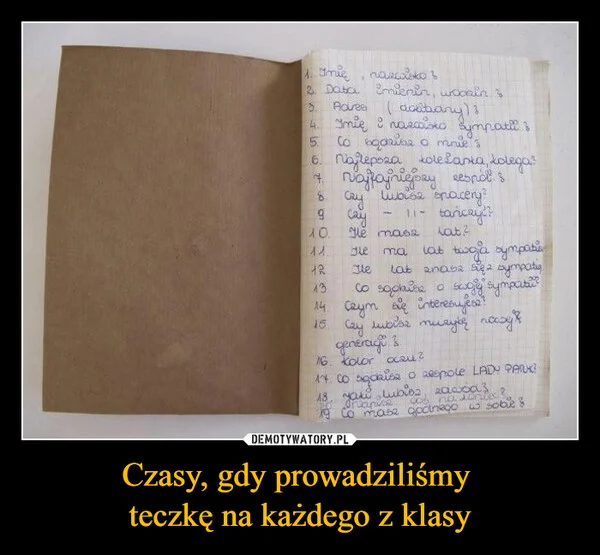 1. Imię, nazwisko?
2. Data imienin, urodzin.?
3. Adres (dokładny)?
4. Imię i nazwisko sympatii?
5. Co sądzisz o mnie?
6. Najlepsza koleżanka, kolega?
7. Najfajniejszy zespół.?
8. Czy lubisz spacery?
9 Czy - 11 - tańczyć?
10. Ile masz lat?
11. Ile ma lat twoja sympatia
12 Ile lat znasz się z sympatią
13 Co sądzisz o swojej sympatii?
14 Czym się interesujesz?
15. Czy lubisz muzykę nocą
generacji?
16. Kolor oczu?
17. Co sądzisz o zespole LADY PANK?
18. jaki lubisz zawód?
19 Co masz godnego w sobie?
DEMOTYWATORY.PL
Czasy, gdy prowadziliśmy
teczkę na każdego z klasy